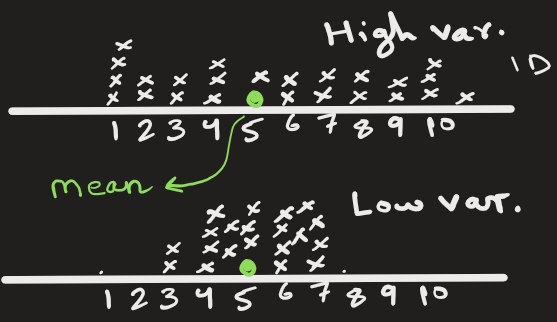 High var.
1D
1 2 3 4 5 6 7 8 9 10
mean
Low var.
1 2 3 4 5 6 7 8 9 10